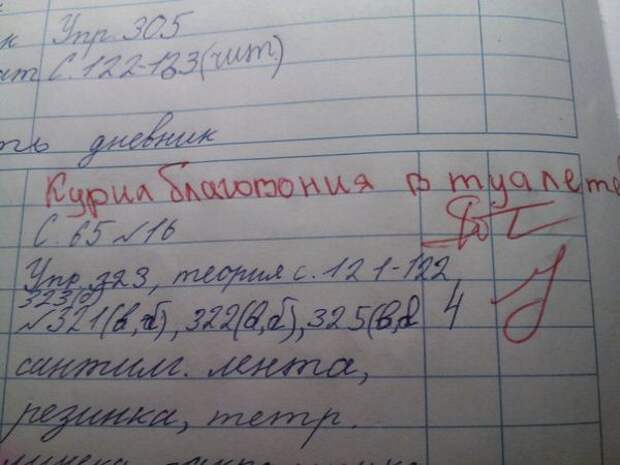 к Упр. 305
ат С. 122-123(чит.)
ть дневник
Курил благовония в туалете
С. 65 №16
Упр. 323, теория с. 121-122
323(б)
№321(в,б), 322(в,б), 325(в, 4
сантим. лента,
резинка, тетр.